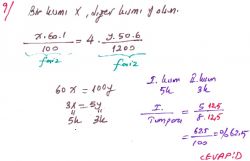 9/ Bir kısmı x, diğer kısmı y olsun.
x.60.1 / 100 = 4 . y.50.6 / 1200
faiz faiz
60x = 100y
3x = 5y
5k 3k
I. kısım II. kısım
5k 3k
I. / Tümpara = 5.12,5 / 8.12,5
= 62,5 / 100 = %62,5
CEVAP: D